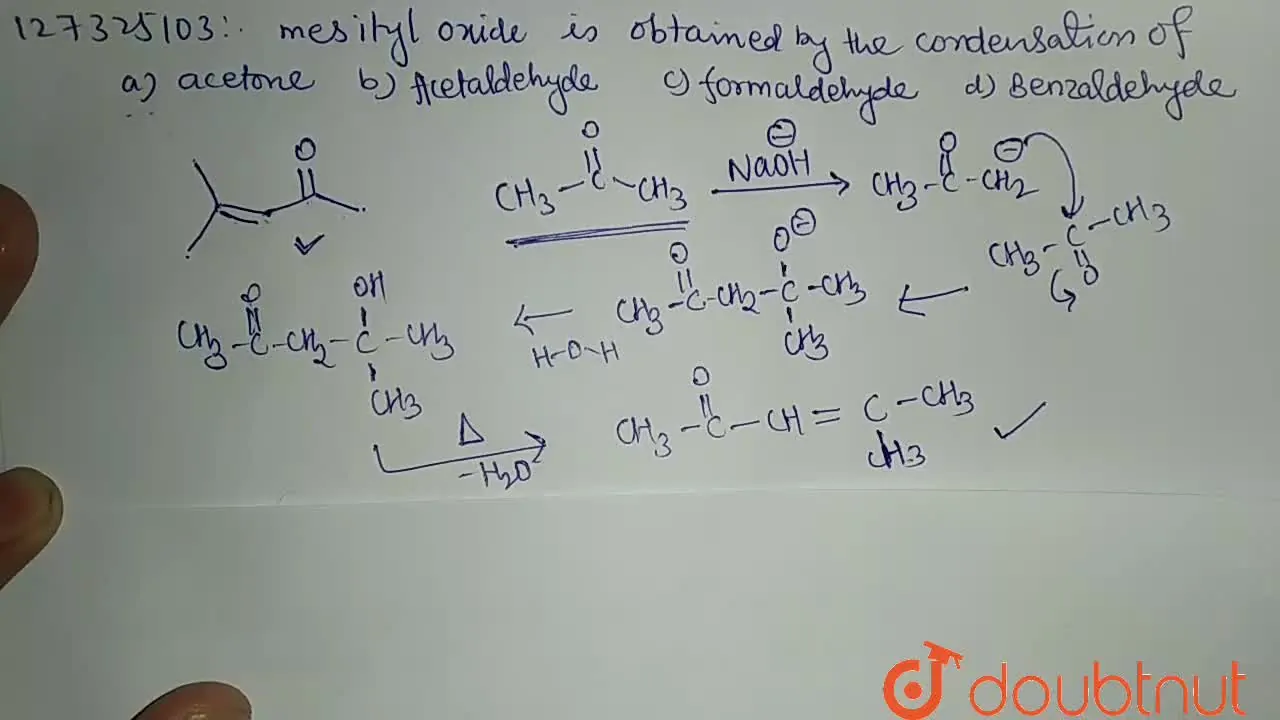 127325103:· mesityl oxide is obtained by the condensation of
a) acetone b) Acetaldehyde c) formaldehyde d) Benzaldehyde
O
O
CH3-C-CH3
NaOH
O
CH3-C-CH2
CH3-C-CH3
O
O
OH
CH3-C-CH2-C-CH3
CH3
H-O-H
O
O
CH3-C-CH2-C-CH3
CH3
Δ
-H2O
O
CH3-C-CH=C-CH3
CH3
doubtnut